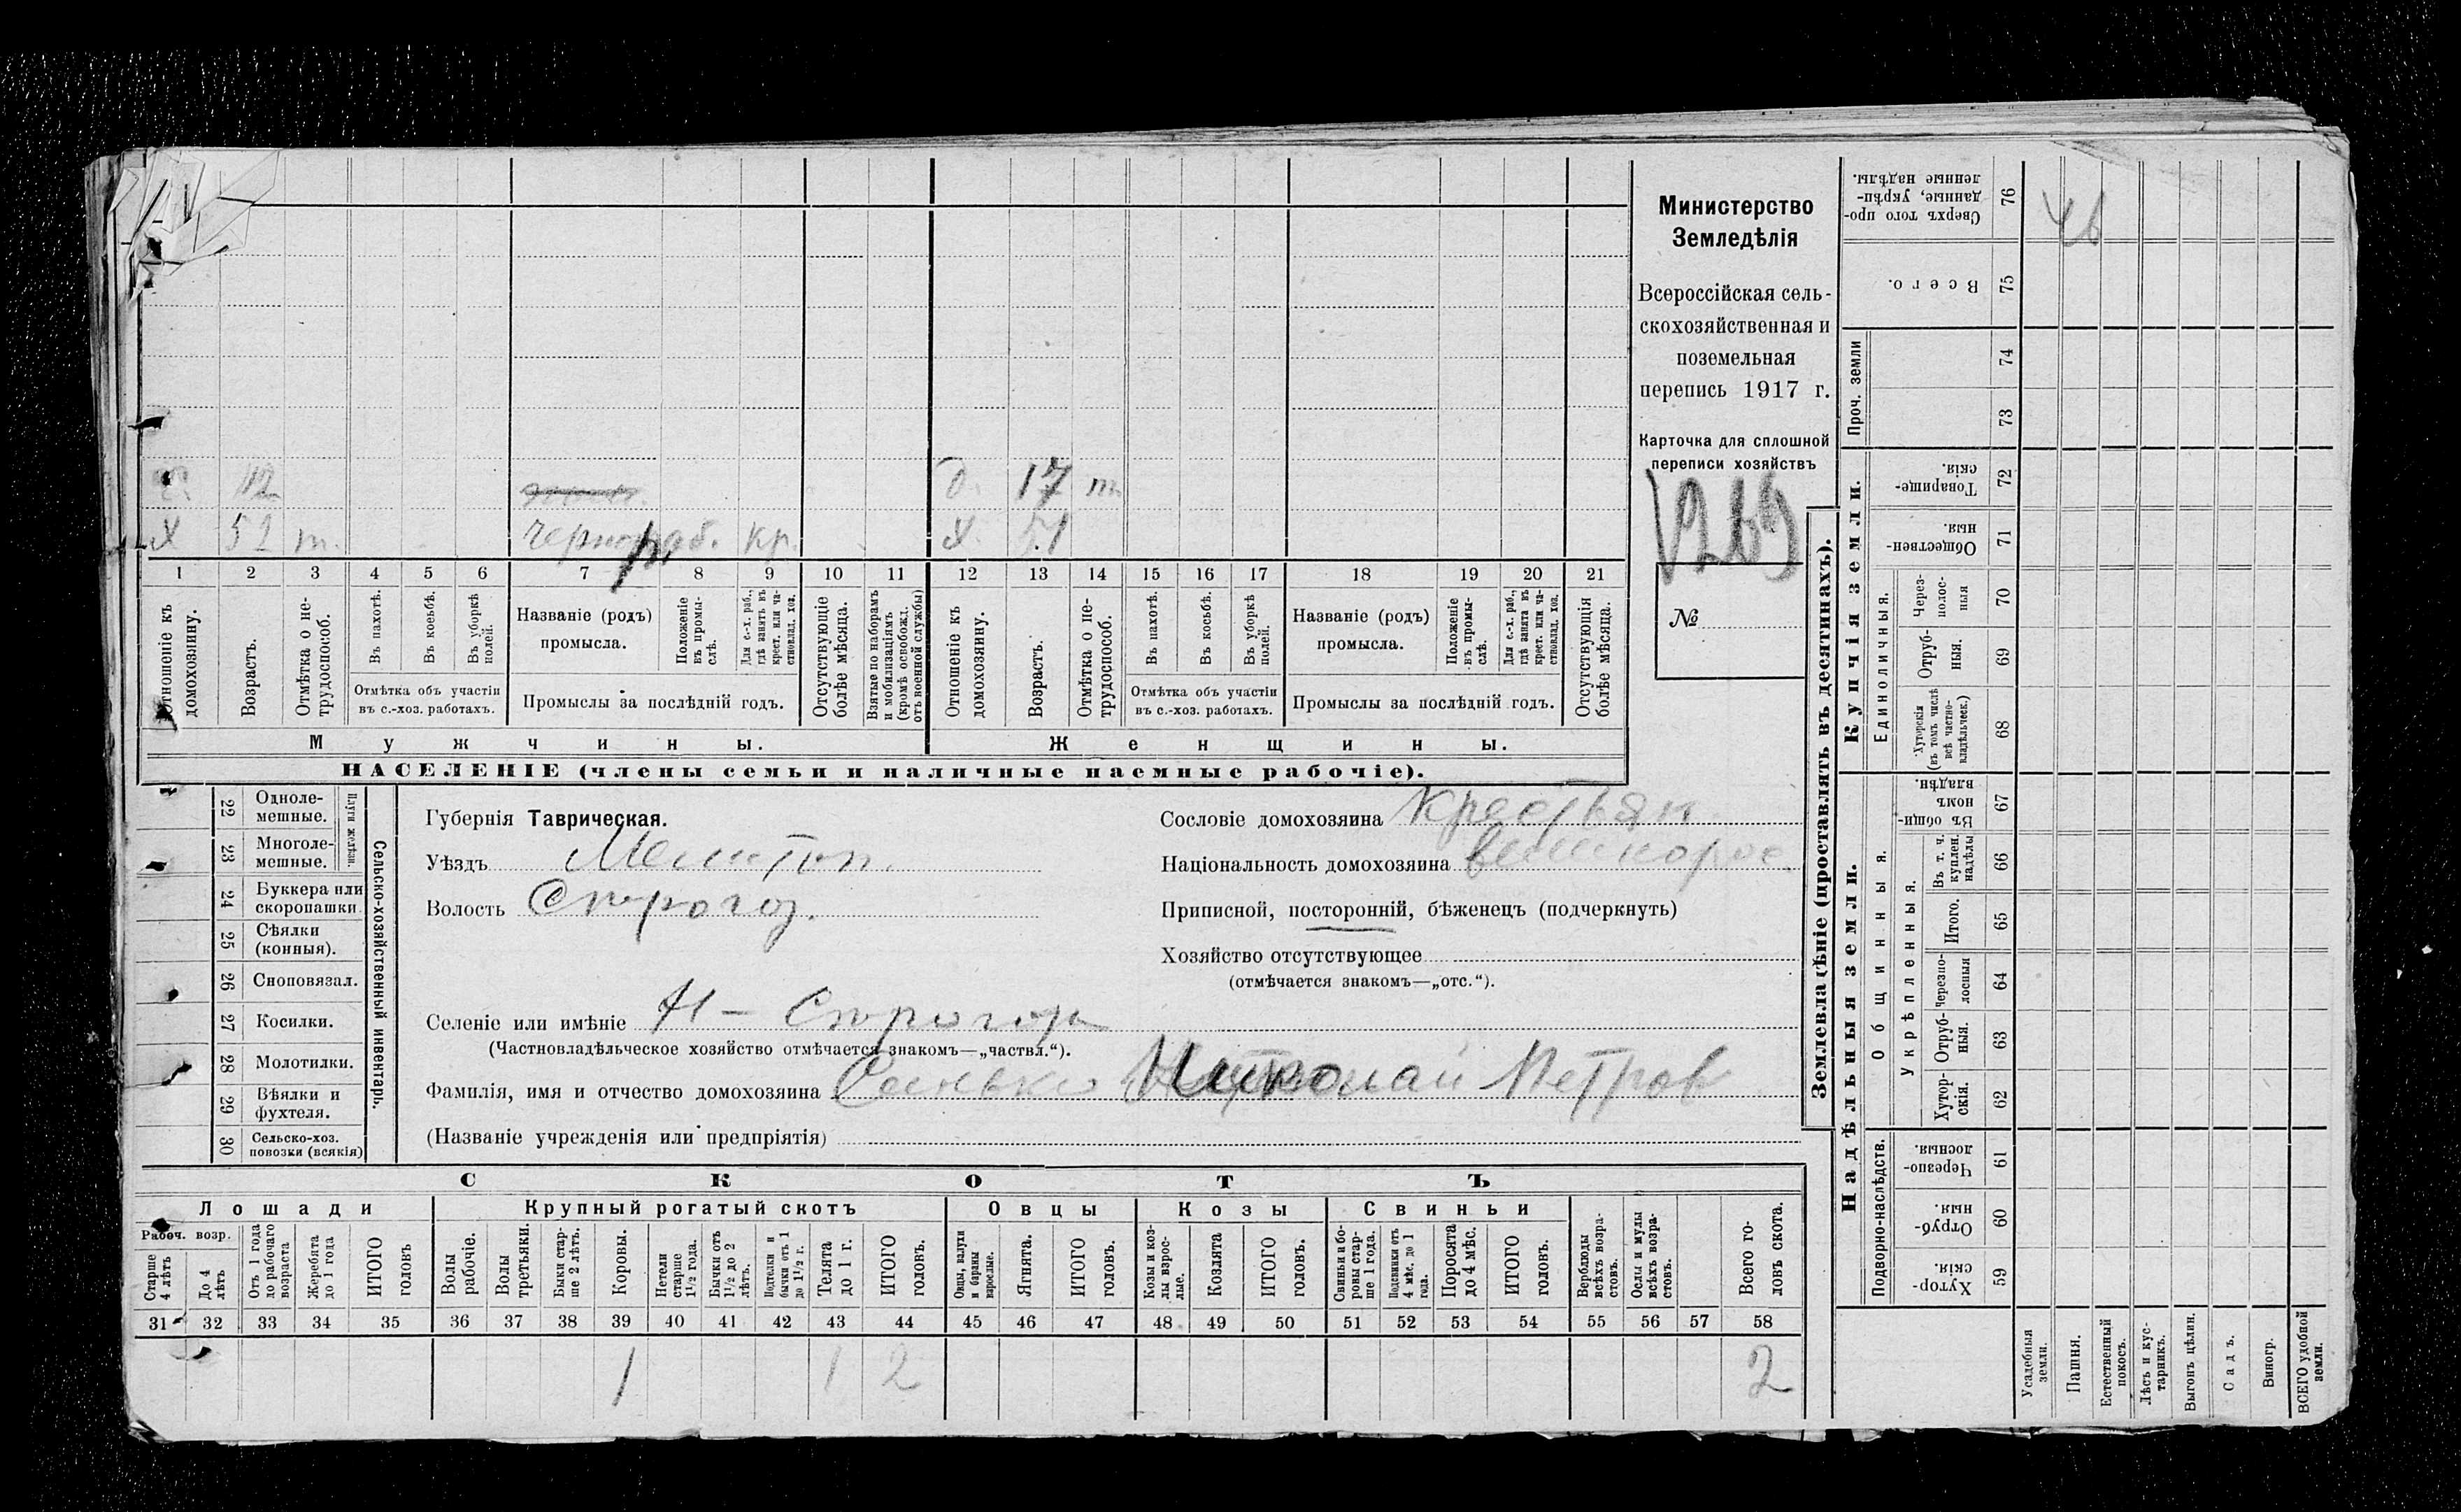 Министерство
Земледѣлія
Всероссійская сель-
скохозяйственная и
поземельная
перепись 1917 г.
Карточка для сплошной
переписи хозяйствъ
№
12 17 т
Х 52 т. черпораб. кр. Х 51
1 2 3 4 5 6 7 8 9 10 11 12 13 14 15 16 17 18 19 20 21
Отношеніе къ домохозяину.
Возрастъ.
Отмѣтка о не-трудоспособ.
Въ пахотѣ.
Въ косьбѣ.
Въ уборкѣ полей.
Отмѣтка объ участіи
въ с.-хоз. работахъ.
Названіе (родъ)
промысла.
Положеніе въ промы-слѣ.
Для с.-х. раб., гдѣ занятъ въ крест. или ча-стновлад. хоз.
Промыслы за послѣдній годъ.
Отсутствующіе болѣе мѣсяца.
Взятые по наборамъ и мобилизаціямъ (кромѣ освобожд. отъ военной службы)
Отношеніе къ домохозяину.
Возрастъ.
Отмѣтка о не-трудоспособ.
Въ пахотѣ.
Въ косьбѣ.
Въ уборкѣ полей.
Отмѣтка объ участіи
въ с.-хоз. работахъ.
Названіе (родъ)
промысла.
Положеніе въ промы-слѣ.
Для с.-х. раб., гдѣ занята въ крест. или ча-стновлад. хоз.
Промыслы за послѣдній годъ.
Отсутствующія болѣе мѣсяца.
Мужчины. Женщины.
НАСЕЛЕНІЕ (члены семьи и наличные наемные рабочіе).
22 Одноле-мешные.
23 Многоле-мешные.
Плуги желѣзн.
24 Буккера или скоропашки.
25 Сѣялки (конныя).
26 Сноповязал.
27 Косилки.
28 Молотилки.
29 Вѣялки и фухтеля.
30 Сельско-хоз. повозки (всякія)
Сельско-хозяйственный инвентарь.
Губернія Таврическая.
Уѣздъ Мелитоп.
Волость
Селеніе или имѣніе
(Частновладѣльческое хозяйство отмѣчается знакомъ—„частвл.“).
Фамилія, имя и отчество домохозяина Сенько Николай Петров
(Названіе учрежденія или предпріятія)
Сословіе домохозяина крестьян
Національность домохозяина великорос
Приписной, посторонній, бѣженецъ (подчеркнуть)
Хозяйство отсутствующее
(отмѣчается знакомъ—„отс.“).
СКОТЪ
Лошади Крупный рогатый скотъ Овцы Козы Свиньи
Рабоч. возр.
Старше 4 лѣтъ
До 4 лѣтъ
Отъ 1 года до рабочаго возраста
Жеребята до 1 года
ИТОГО головъ
Волы рабочіе.
Волы третьяки.
Быки стар-ше 2 лѣтъ.
Коровы.
Нетели старше 1½ года.
Бычки отъ 1½ до 2 лѣтъ.
Подтелки и бычки отъ 1 до 1½ г.
Телята до 1 г.
ИТОГО головъ.
Овцы, валухи и бараны взрослые.
Ягнята.
ИТОГО головъ.
Козы и коз-лы взрос-лые.
Козлята
ИТОГО головъ.
Свиньи и бо-ровы стар-ше 1 года.
Подсвинки отъ 4 мѣс. до 1 года.
Поросята до 4 мѣс.
ИТОГО головъ.
Верблюды всѣхъ возра-стовъ.
Ослы и мулы всѣхъ возра-стовъ.
Всего го-ловъ скота.
31 32 33 34 35 36 37 38 39 40 41 42 43 44 45 46 47 48 49 50 51 52 53 54 55 56 57 58
1 1 2 2
Землевладѣніе (проставлять въ десятинахъ).
Надѣльныя земли. Купчія земли. Проч. земли
Подворно-наслѣдств.
Общинныя.
Укрѣпленныя.
Единоличныя.
Хутор-скія. 59
Отруб-ныя. 60
Черезпо-лосныя 61
Хутор-скія. 62
Отруб-ныя. 63
Черезпо-лосныя 64
Итого. 65
Въ т. ч. куплен. надѣлы 66
Въ общин-номъ владѣн. 67
Хуторскія (въ томъ числѣ всѣ частно-владѣльческ.) 68
Отруб-ныя. 69
Через-полос-ныя 70
Обществен-ныя 71
Товарище-скія. 72
73
74
Всего. 75
Сверхъ того про-данные, укрѣп-ленные надѣлы. 76
Усадебныя земли.
Пашня.
Естественный покосъ.
Лѣсъ и кус-тарникъ.
Выгонъ цѣлин.
Садъ.
Виногр.
ВСЕГО удобной земли.